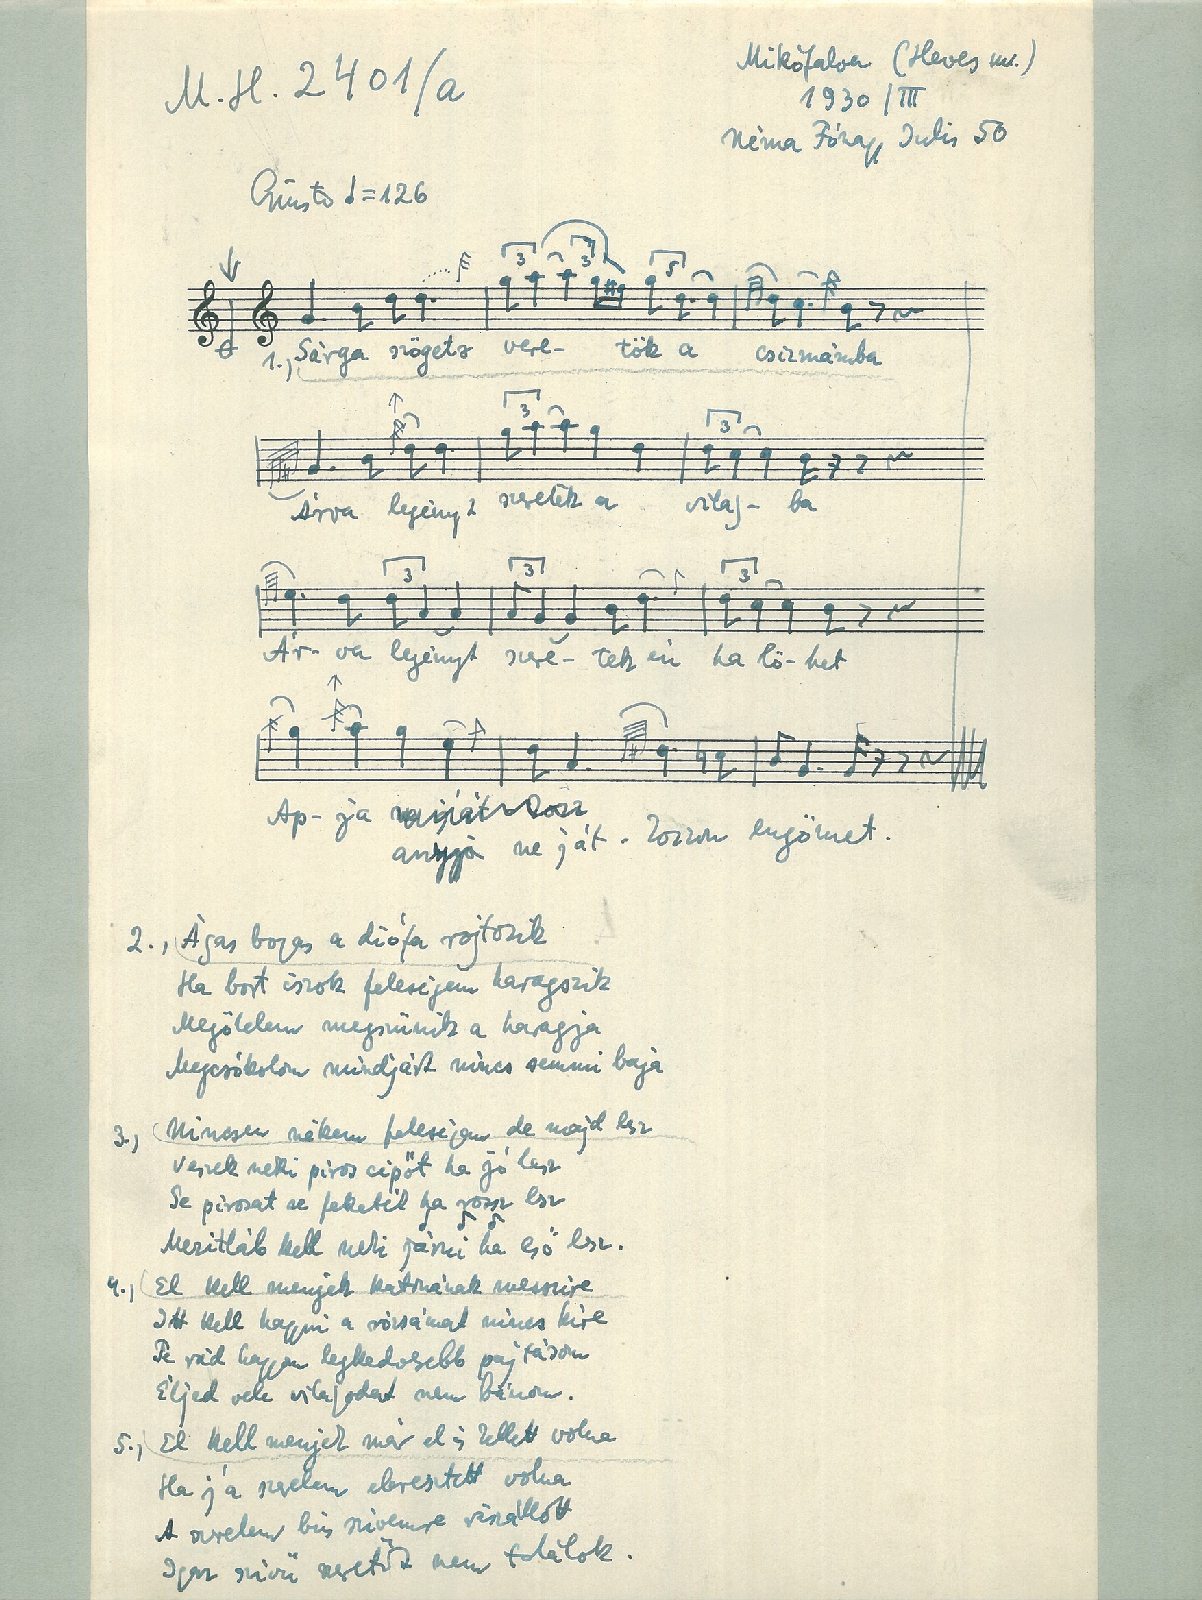 M.H. 2401/a
Mikófalva (Heves m.)
1930/III
Néma Fónagy Julis 50
Giusto ♩=126
1., Sárga szöget vere- tök a csizmámba
Árva legényt szeretek a világ- ba
Ár- va legényt szere- tek én ha lö- het
Ap- ja
anyja ne ját- zozzon engömet.
2., Ágas bogas a diófa rojtozik
Ha bort iszok feleségem haragszik
Megölelem megszűnik a haragja
Megcsókolom mindjárt nincs semmi baja
3., Nincsen nékem feleségem de majd lesz
Veszek neki piros cipőt ha jó lesz
Se pirosat se feketét ha rossz lesz
Mezitláb kell neki járni ha eső lesz.
4., El kell menjek katonának messzire
Itt kell hagyni a rózsámat nincs kire
Te rád hagyom legkedvesebb pajtásom
Éljed vele világodat nem bánom.
5., El kell menjek már el is kellett volna
Ha já szerelem eleresztett volna
A szerelem bús szivemre rászállott
Igaz szivű szeretőt nem találok.